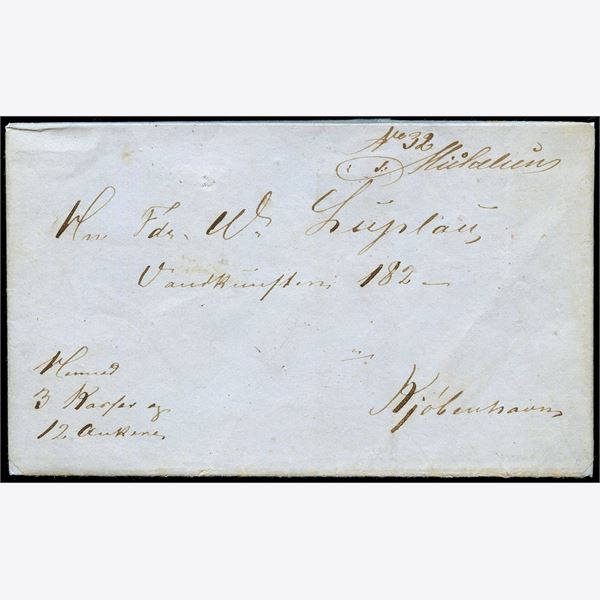 No 32
Hr Fdr. W. Luplau
Vandkunsten 182
Kjøbenhavn
Hermed
3 Kasser og
12 Ankere